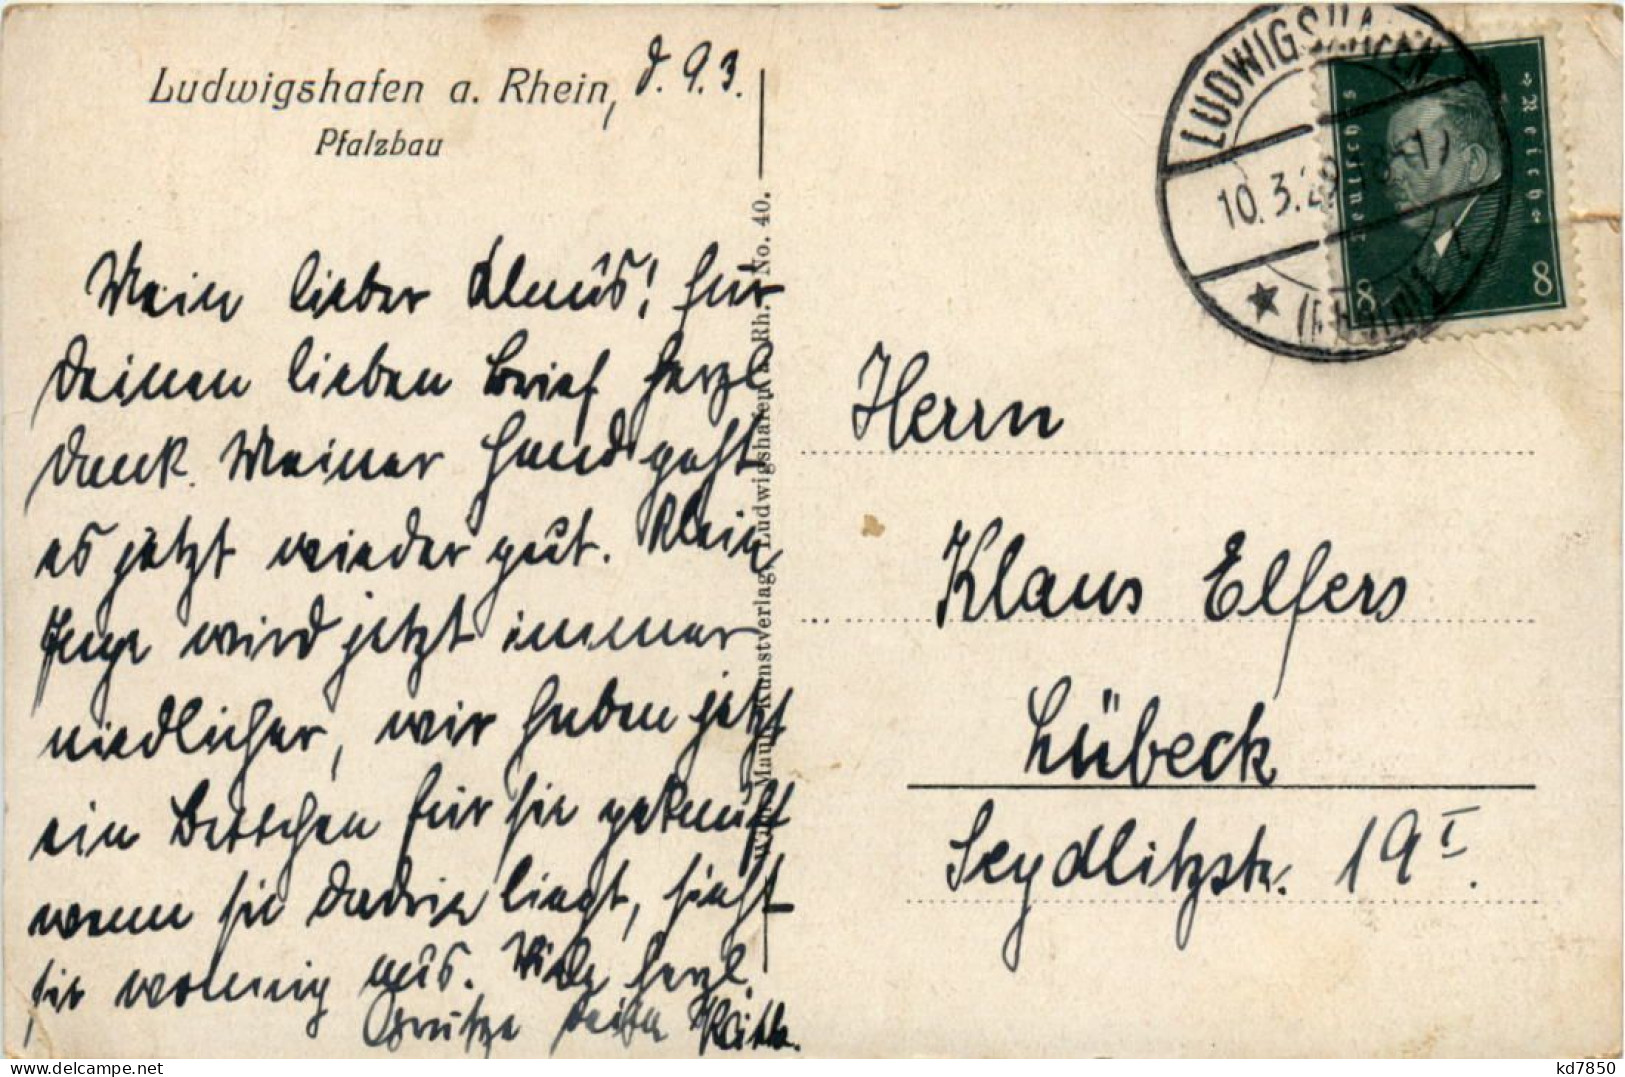 Ludwigshafen a. Rhein, d. 9.3.
Pfalzbau
Mein lieber Klaus! Für
Deinen lieben Brief herzl
Dank. Meiner Hand geht
es jetzt wieder gut. Klein
Inge wird jetzt immer
niedlicher, wir haben jetzt
ein Bettchen für sie gekauft
wenn sie darin liegt, sieht
sie wonnig aus. Viele herzl.
Grüsse Deine Käthe.
Kunstverlag, Ludwigshafen a. Rh. No. 40.
LUDWIGSHAFEN
10.3.29
Deutsches Reich
8 8
Herrn
Klaus Elfers
Lübeck
Seydlitzstr. 19 I.
kd7850